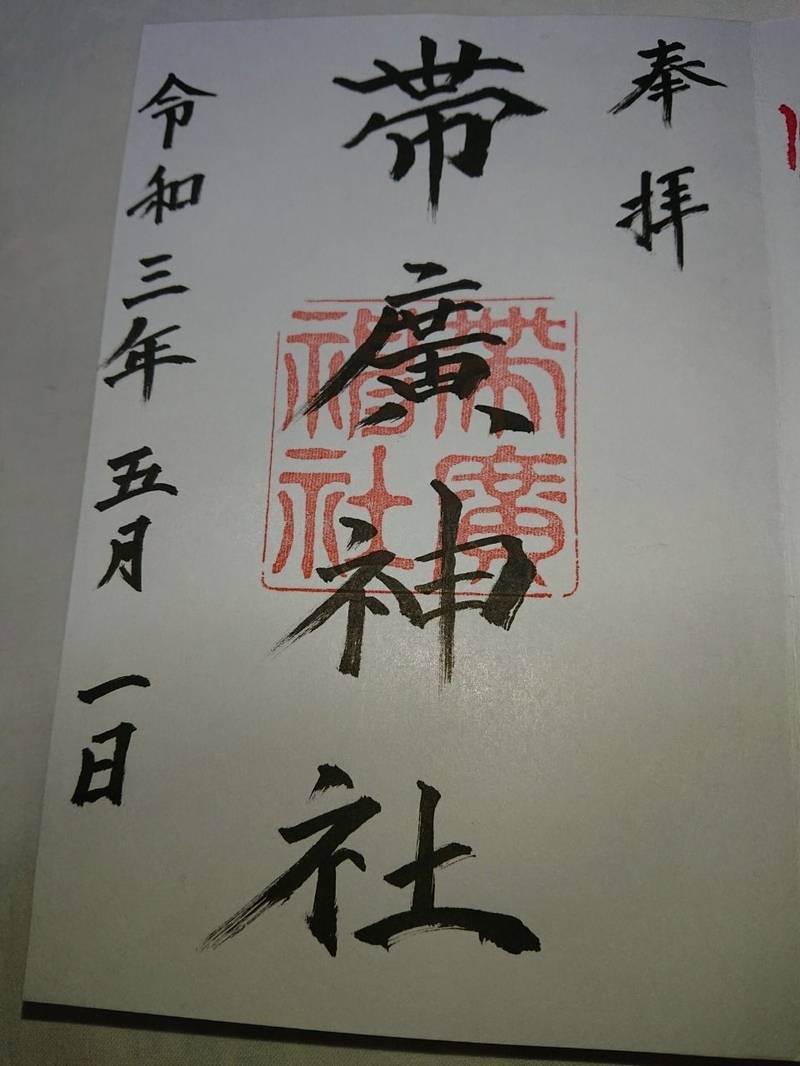 奉拝
帯廣神社
帯廣
神社
令和三年 五月 一日